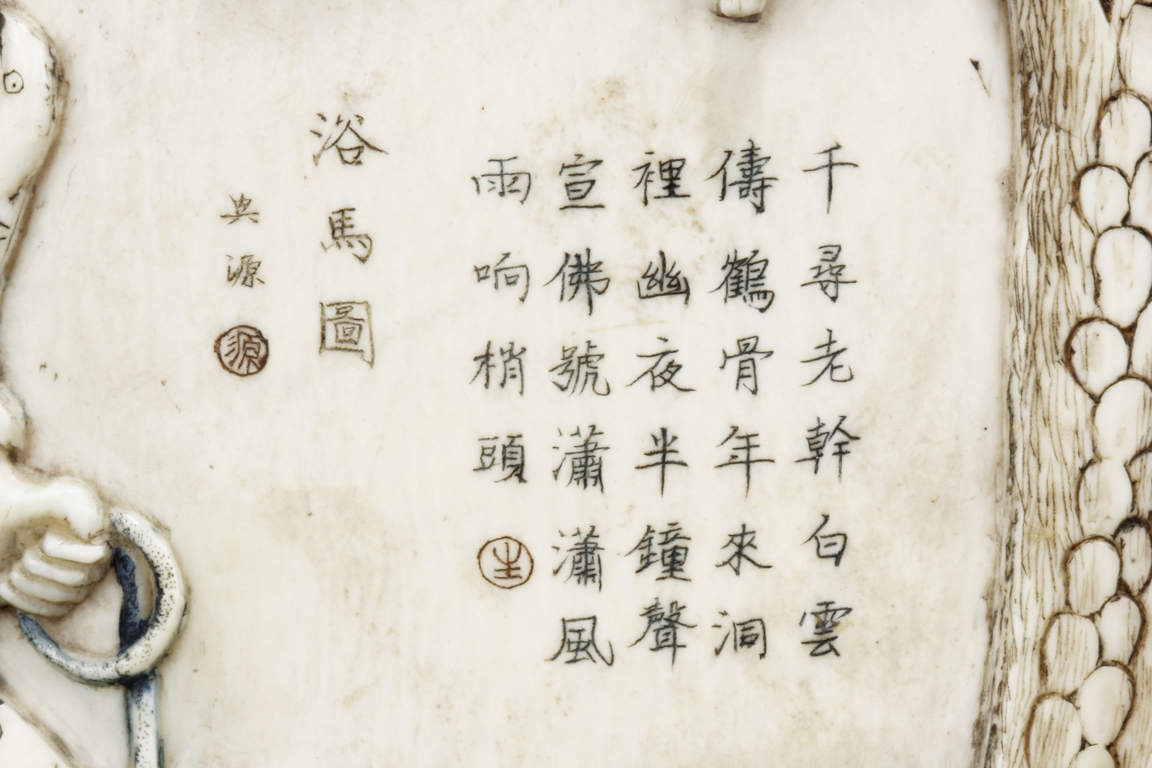 千尋老幹白雲
儔鶴骨年來洞
裡幽夜半鐘聲
宣佛號瀟瀟風
雨响梢頭
生
浴馬圖
典源
源